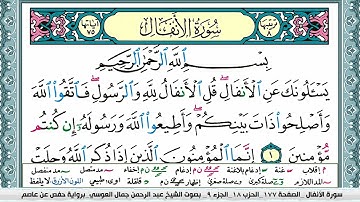 سُورَةُ الأَنفَالِ
ترتيبها ٨
آياتها ٧٥
بِسْمِ اللَّهِ الرَّحْمَٰنِ الرَّحِيمِ
يَسْـَٔلُونَكَ عَنِ ٱلْأَنفَالِ قُلِ ٱلْأَنفَالُ لِلَّهِ وَٱلرَّسُولِ فَٱتَّقُوا۟ ٱللَّهَ
وَأَصْلِحُوا۟ ذَاتَ بَيْنِكُمْ وَأَطِيعُوا۟ ٱللَّهَ وَرَسُولَهُۥٓ إِن كُنتُم
مُّؤْمِنِينَ ١ إِنَّمَا ٱلْمُؤْمِنُونَ ٱلَّذِينَ إِذَا ذُكِرَ ٱللَّهُ وَجِلَتْ
سورة الأنفال _ الصفحة ١٧٧ _ الحزب ١٨ _ الجزء ٩ _ بصوت الشيخ عبد الرحمن جمال العوسي _ برواية حفص عن عاصم